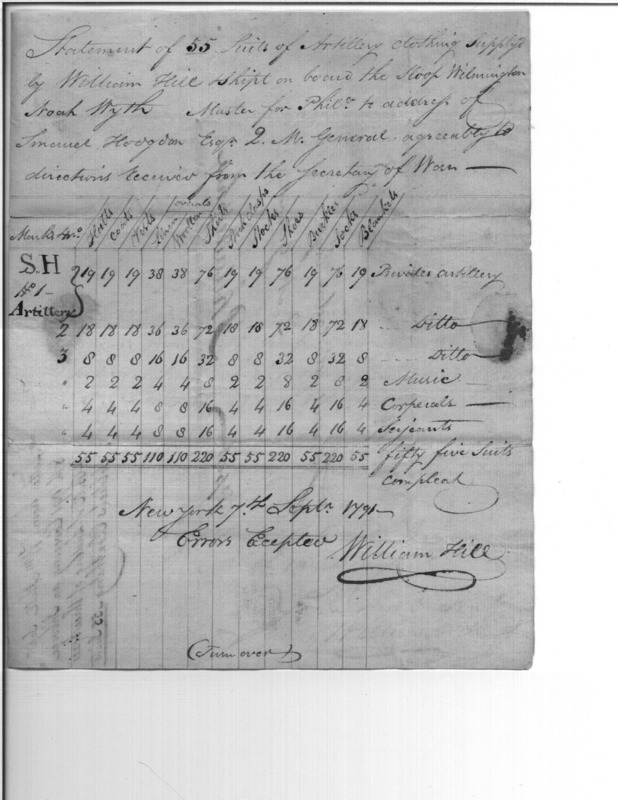 Statement of 55 Suits of Artillery clothing Supply'd
by William Hill & shipt on board the Sloop Wilmington
Noah Wyth Master for Phila. to address of
Samuel Hodgdon Esqr. Q. M. General, agreeably to
directions received from the Secretary of War
Marks & No. Hatts Coats Vests Linen Woollen overalls Shirts Stocks Shoes Buckles Socks Blankets
S.H 19 19 19 38 38 76 19 19 76 19 76 19 Privates artillery
No 1
Artillery
2 18 18 18 36 36 72 18 18 72 18 72 18 Ditto
3 8 8 8 16 16 32 8 8 32 8 32 8 Ditto
" 2 2 2 4 4 8 2 2 8 2 8 2 Music
" 4 4 4 8 8 16 4 4 16 4 16 4 Corperals
" 4 4 4 8 8 16 4 4 16 4 16 4 Serjeants
55 55 55 110 110 220 55 55 220 55 220 55 fifty five Suits
Compleat
New York 7th Septr. 1791
Errors Excepted William Hill
(Turn over)